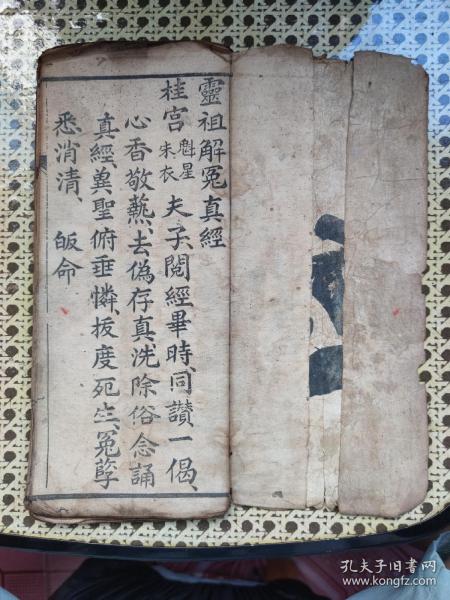 靈祖解冤真經
桂宮魁星朱衣夫子、閱經畢時、同讚一偈、
心香敬爇、去偽存真、洗除俗念、誦
真經、冀聖俯垂憐、拔度死生、冤孽
悉消清、皈命
孔夫子旧书网
www.kongfz.com